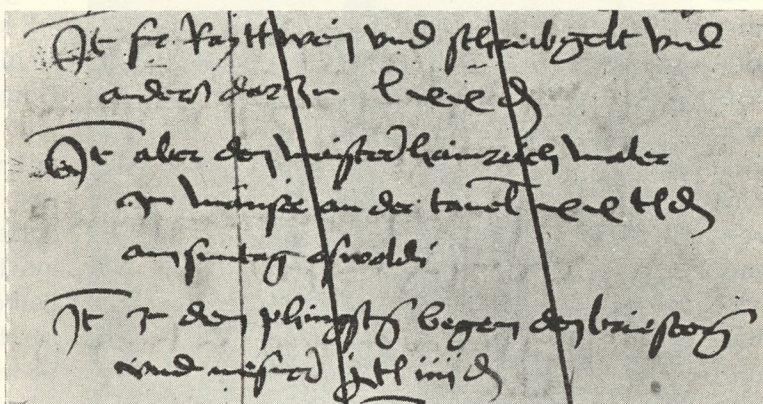 It fr Raytt wein vnd schreibgelt vnd
anders darzu lxxx d
It aber dem maister hainreich maler
Jn mänsee an der tauel xxx tl d
am suntag oswoldi
It Jn den phingsten begen den briestern
vnd mesner j tl iiij d